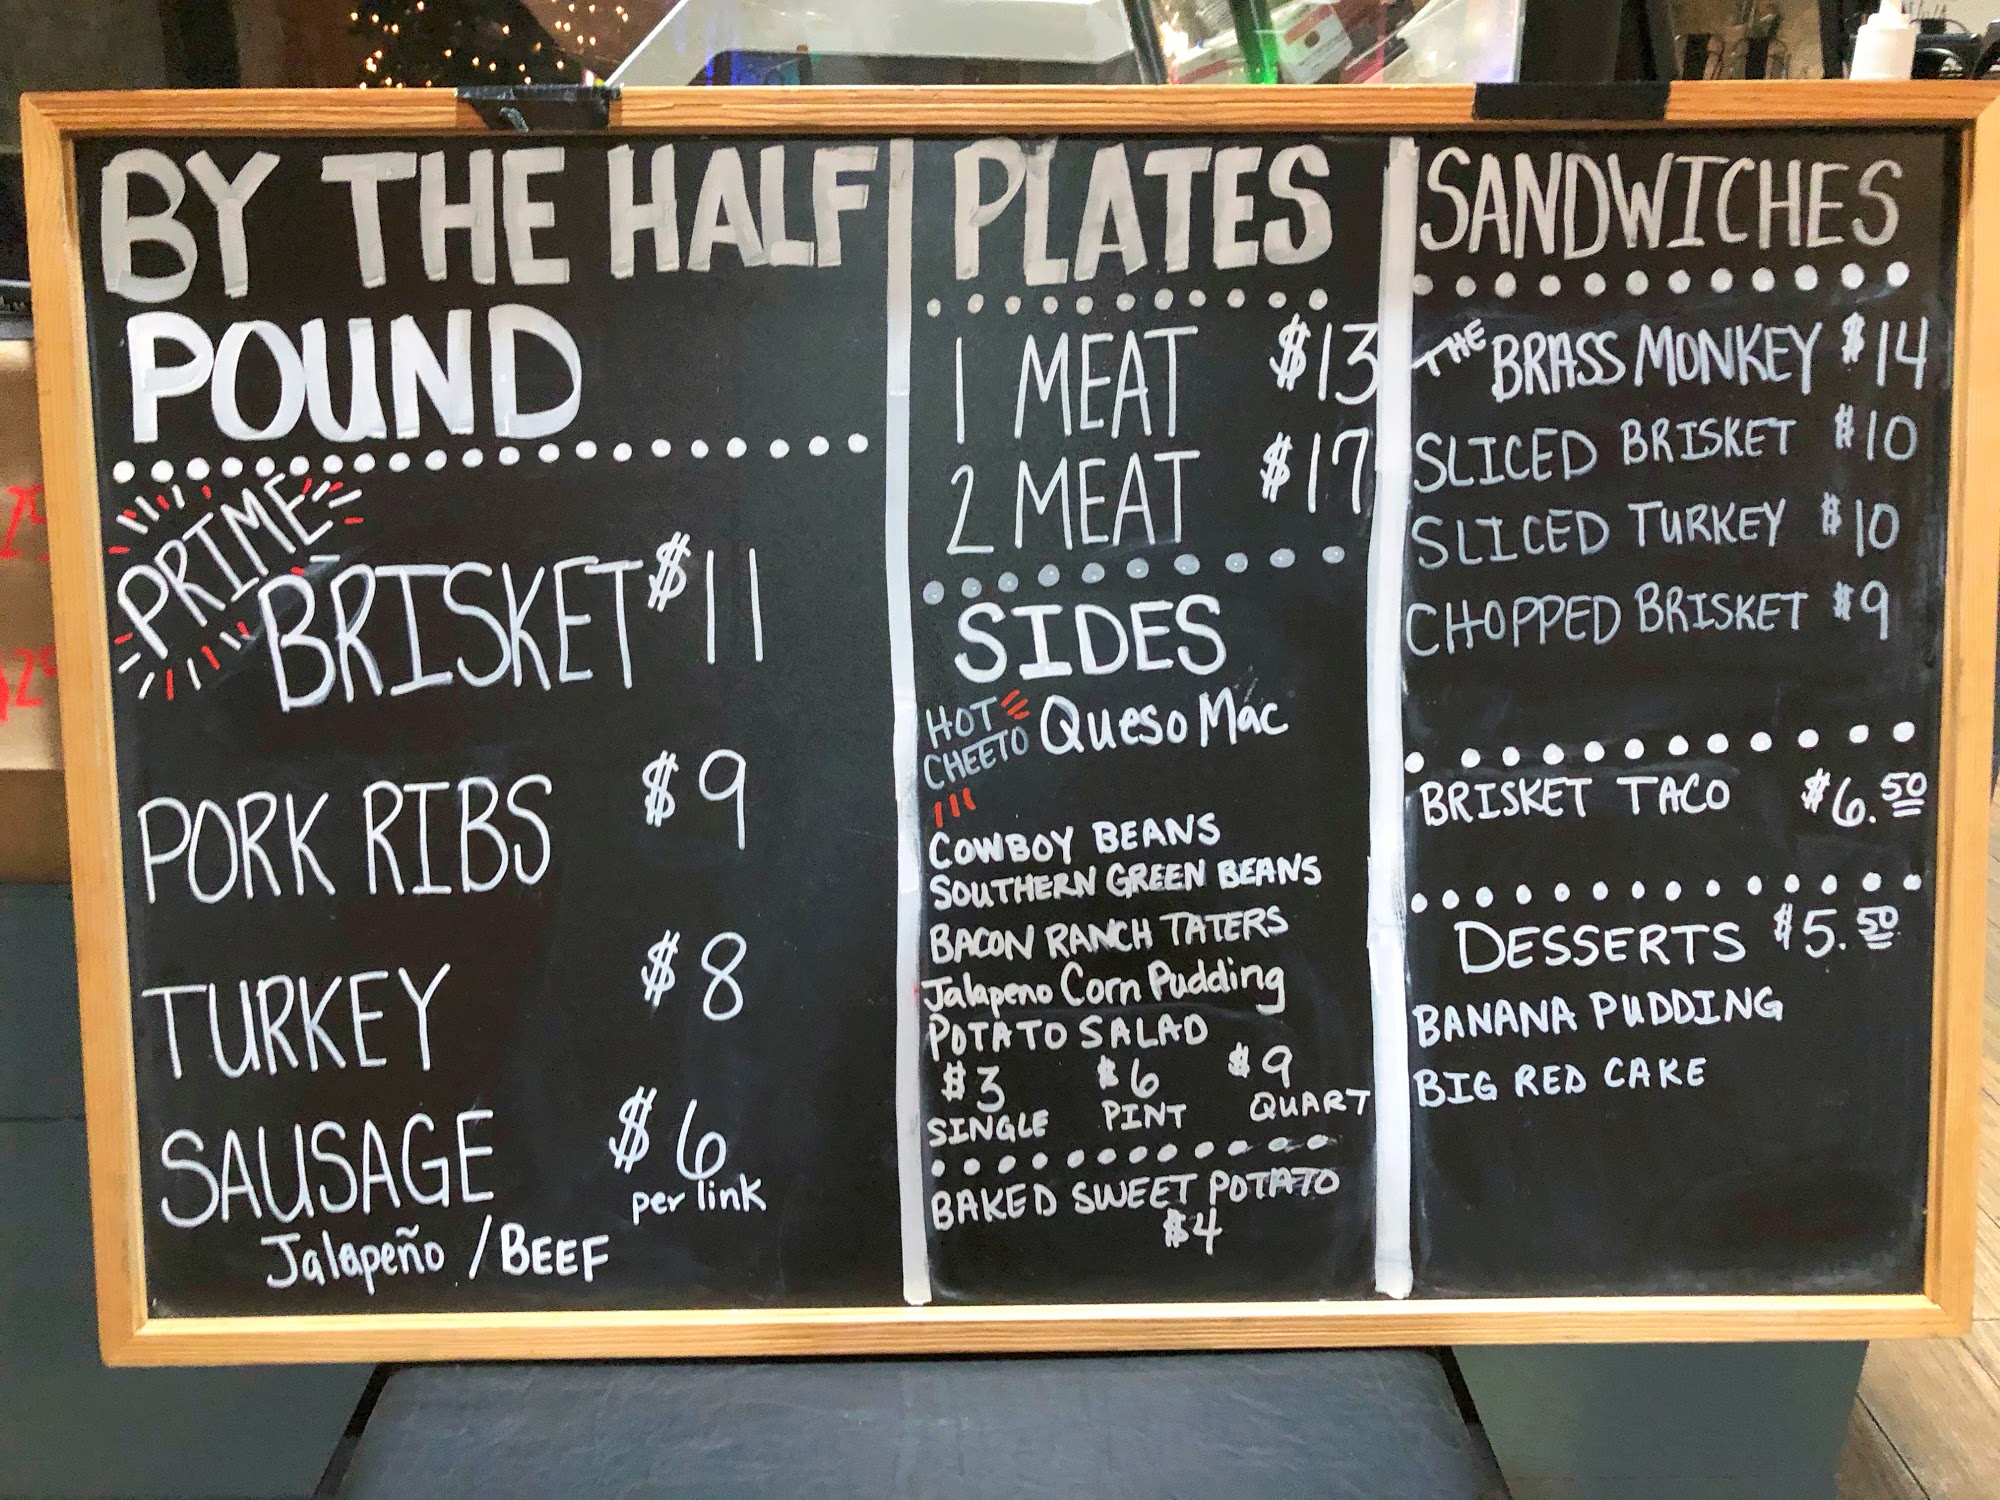 BY THE HALF
POUND
PRIME
BRISKET $11
PORK RIBS $9
TURKEY $8
SAUSAGE $6
per link
Jalapeño / BEEF
PLATES
1 MEAT $13
2 MEAT $17
SIDES
HOT
CHEETO Queso Mac
COWBOY BEANS
SOUTHERN GREEN BEANS
BACON RANCH TATERS
Jalapeno Corn Pudding
POTATO SALAD
$3 $6 $9
SINGLE PINT QUART
BAKED SWEET POTATO
$4
SANDWICHES
THE BRASS MONKEY $14
SLICED BRISKET $10
SLICED TURKEY $10
CHOPPED BRISKET $9
BRISKET TACO $6.50
DESSERTS $5.50
BANANA PUDDING
BIG RED CAKE